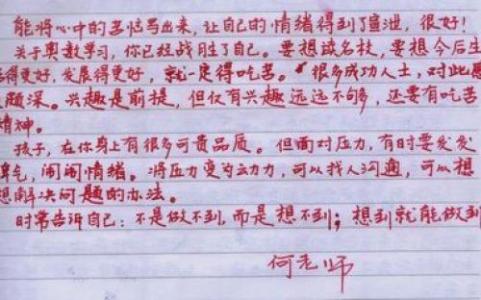 能将心中的苦恼写出来，让自己的情绪得到了宣泄，很好！
关于奥数学习，你已经战胜了自己。要想读名校，要想今后生
得更好，发展得更好，就一定得吃苦。很多成功人士，对此感
颇深。兴趣是前提，但仅有兴趣远远不够，还要有吃苦
精神。
孩子，在你身上有很多可贵品质。但面对压力，有时要发发
脾气，闹闹情绪。将压力变为动力，可以找人沟通，可以想
想解决问题的办法。
时常告诉自己：不是做不到，而是想不到；想到就能做到
何老师